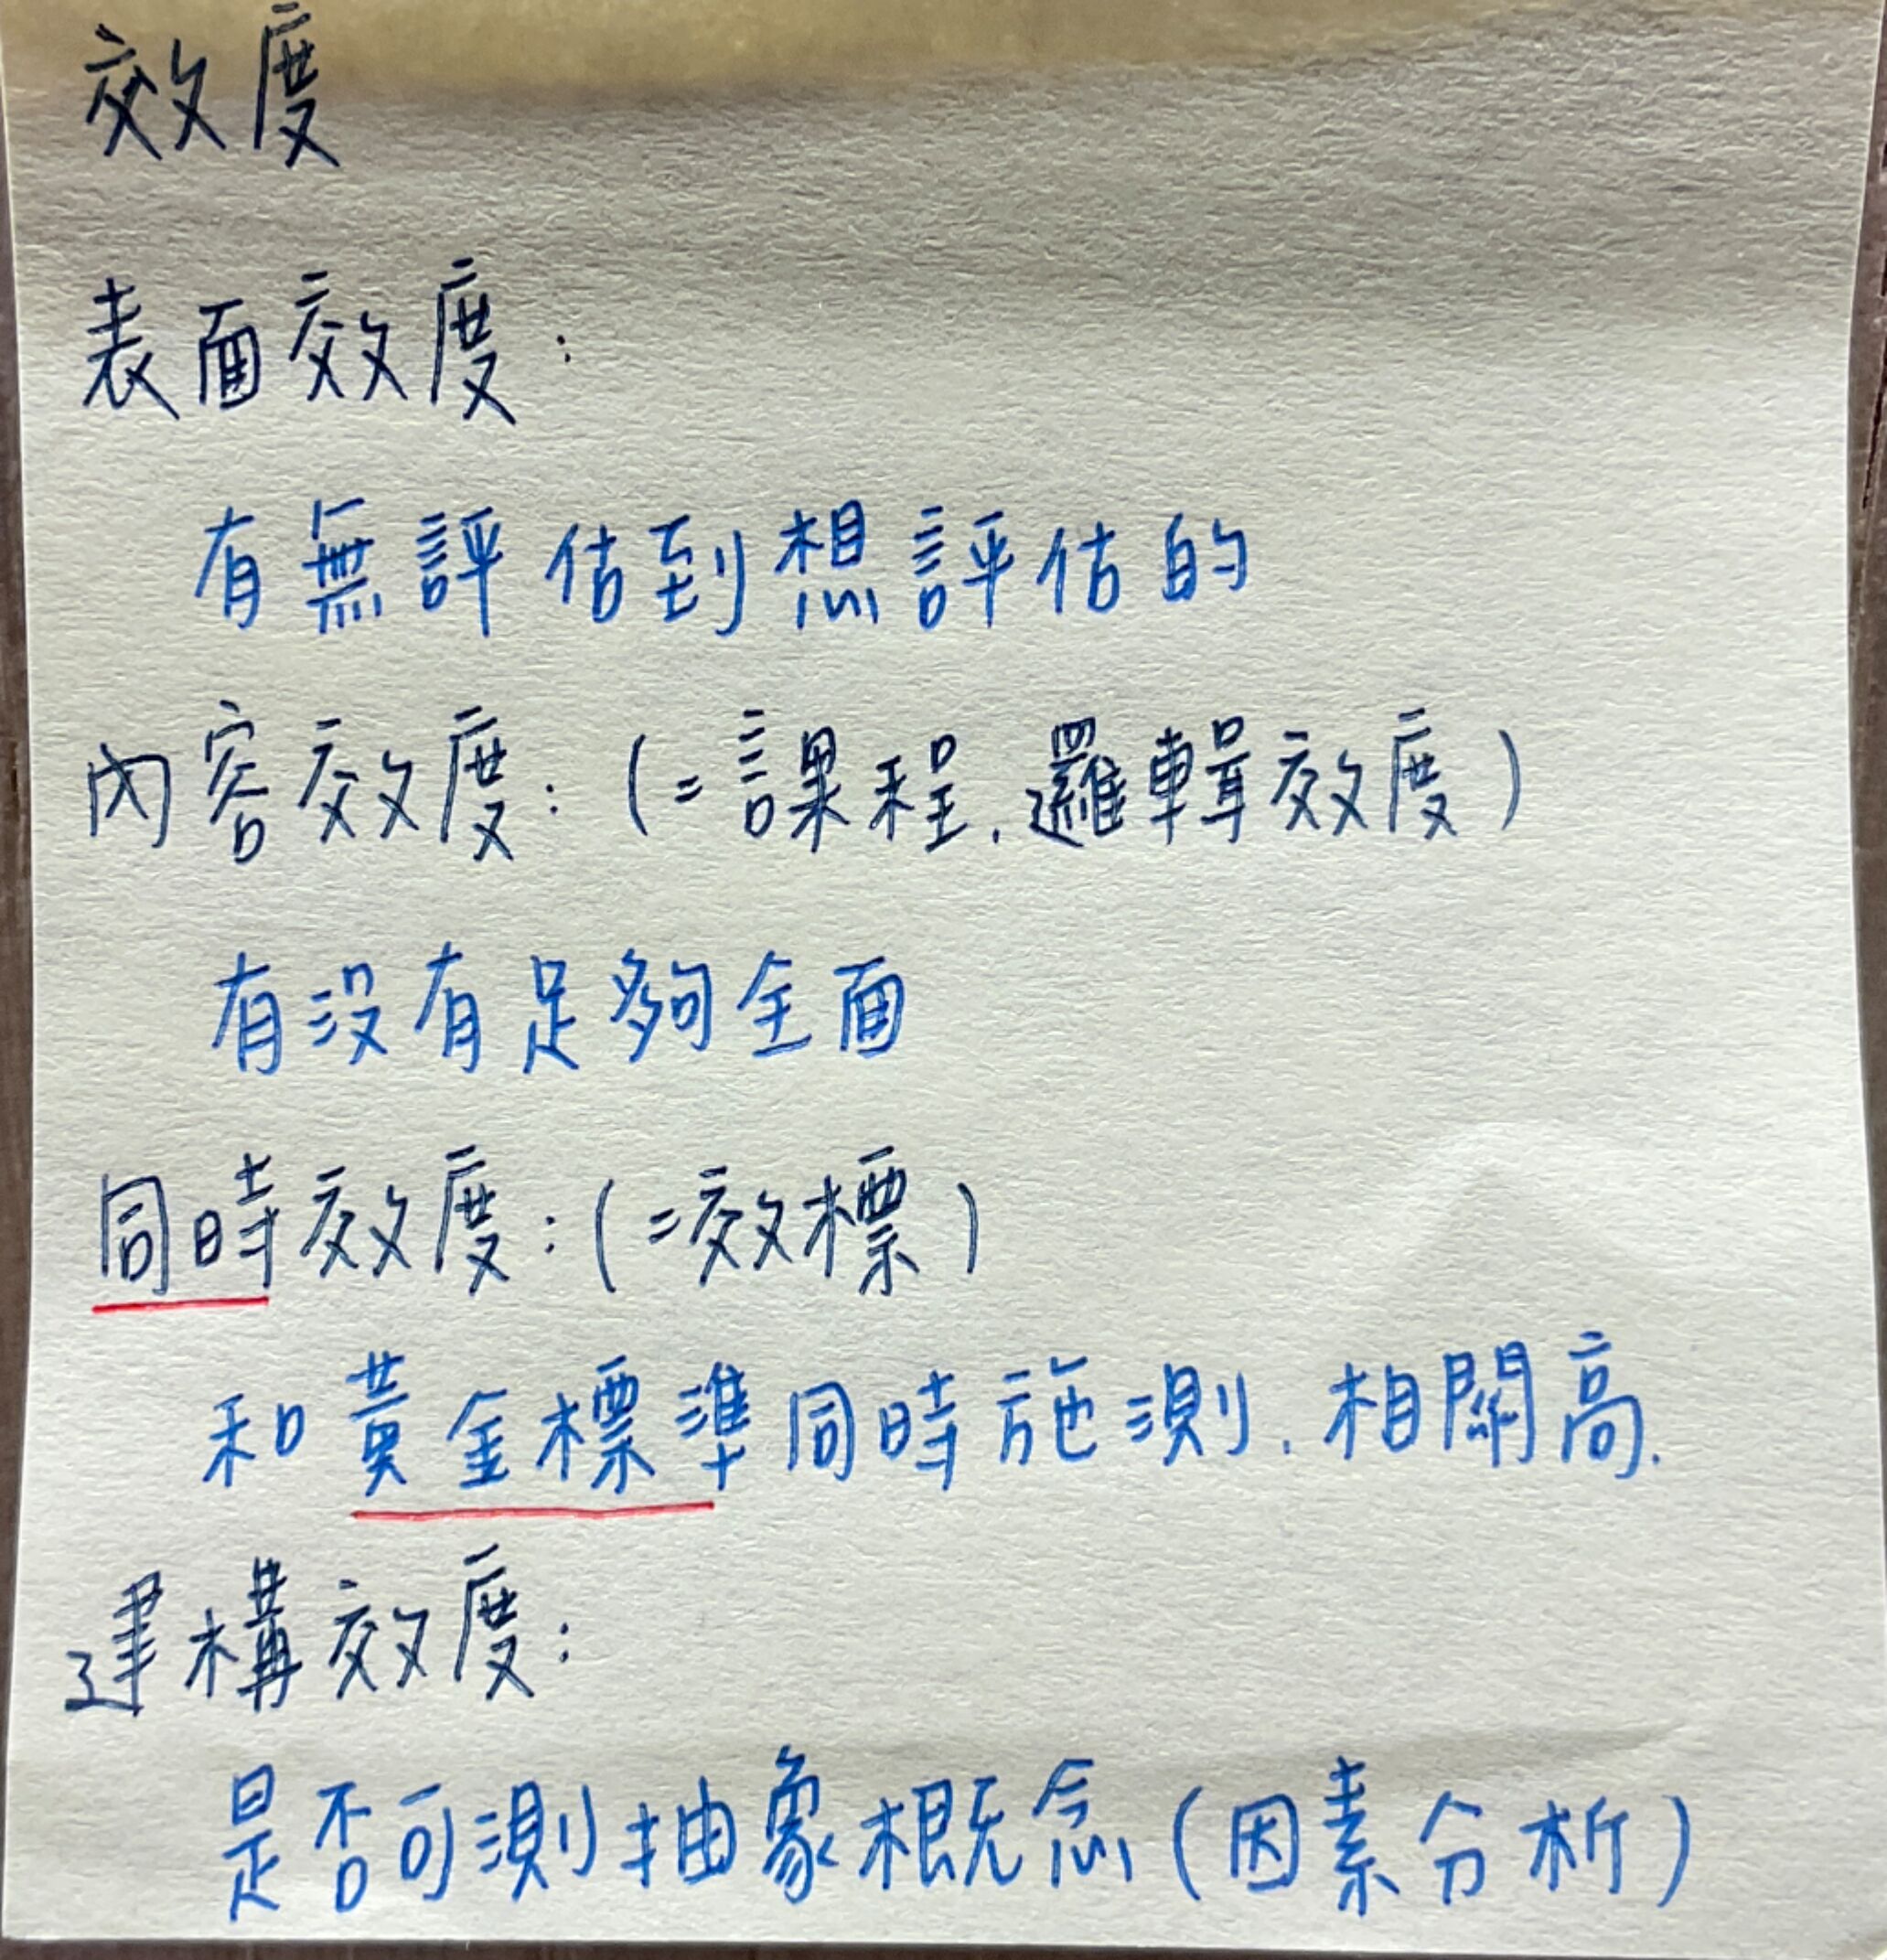 效度
表面效度:
有無評估到想評估的
內容效度: (=課程.邏輯效度)
有沒有足夠全面
同時效度:(=效標)
和黃金標準同時施測.相關高.
建構效度:
是否可測抽象概念(因素分析)